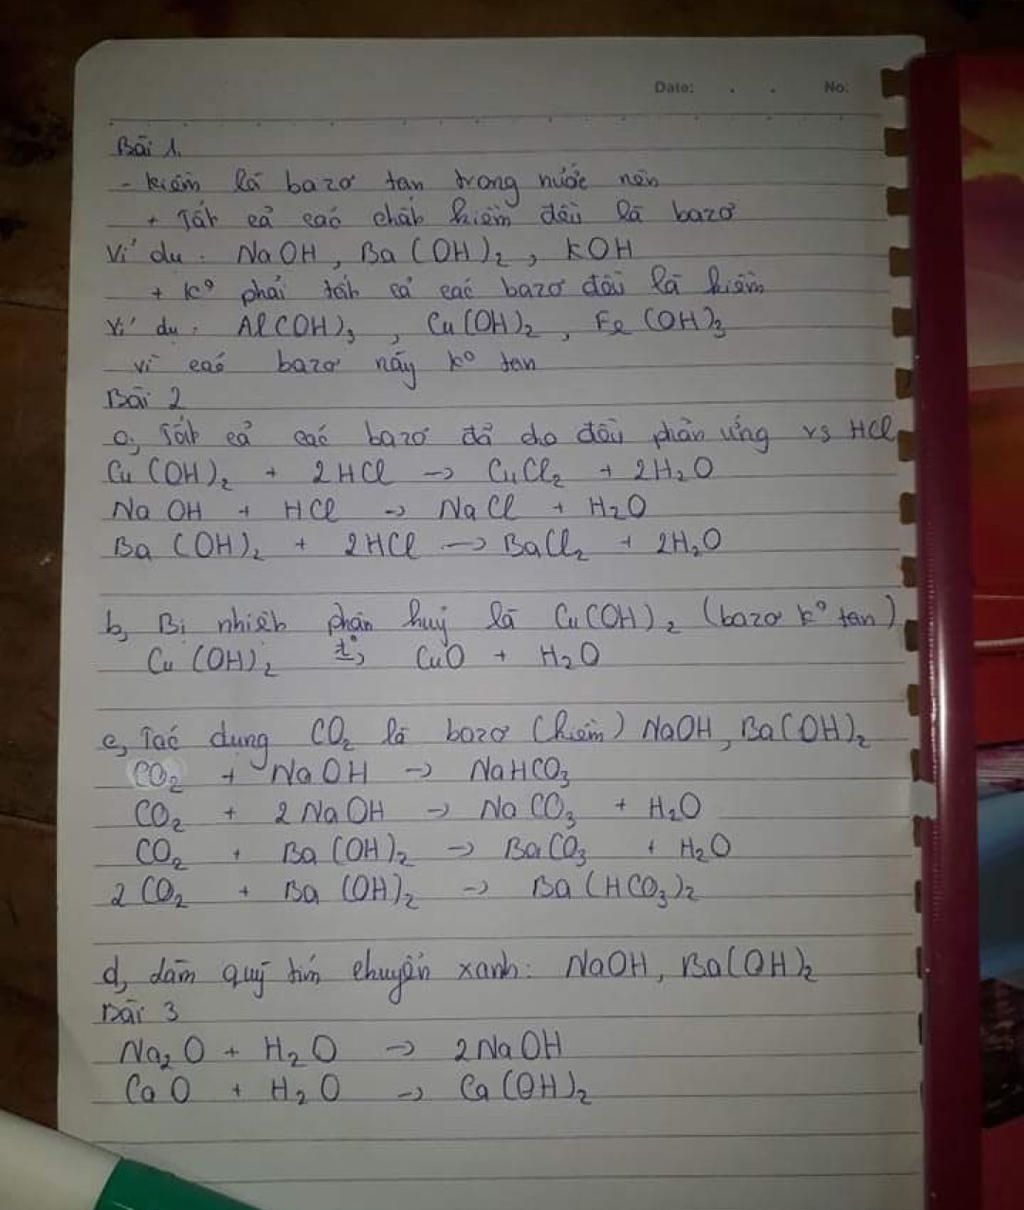 Date: . . No:
Bài 1.
- kiềm là bazơ tan trong nước nên
+ Tất cả các chất kiềm đều là bazơ
Ví dụ: NaOH, Ba(OH)₂, KOH
+ k° phải tất cả các bazơ đều là kiềm
Ví dụ: Al(OH)₃, Cu(OH)₂, Fe(OH)₃
vì các bazơ này k° tan
Bài 2
a, Tất cả các bazơ đã cho đều phản ứng vs HCl
Cu(OH)₂ + 2HCl → CuCl₂ + 2H₂O
NaOH + HCl → NaCl + H₂O
Ba(OH)₂ + 2HCl → BaCl₂ + 2H₂O
b, Bị nhiệt phân huỷ là Cu(OH)₂ (bazơ k° tan)
Cu(OH)₂ t°→ CuO + H₂O
c, Tác dụng CO₂ là bazơ (kiềm) NaOH, Ba(OH)₂
CO₂ + NaOH → NaHCO₃
CO₂ + 2NaOH → NaCO₃ + H₂O
CO₂ + Ba(OH)₂ → BaCO₃ + H₂O
2CO₂ + Ba(OH)₂ → Ba(HCO₃)₂
d, làm quỳ tím chuyển xanh: NaOH, Ba(OH)₂
Bài 3
Na₂O + H₂O → 2NaOH
CaO + H₂O → Ca(OH)₂